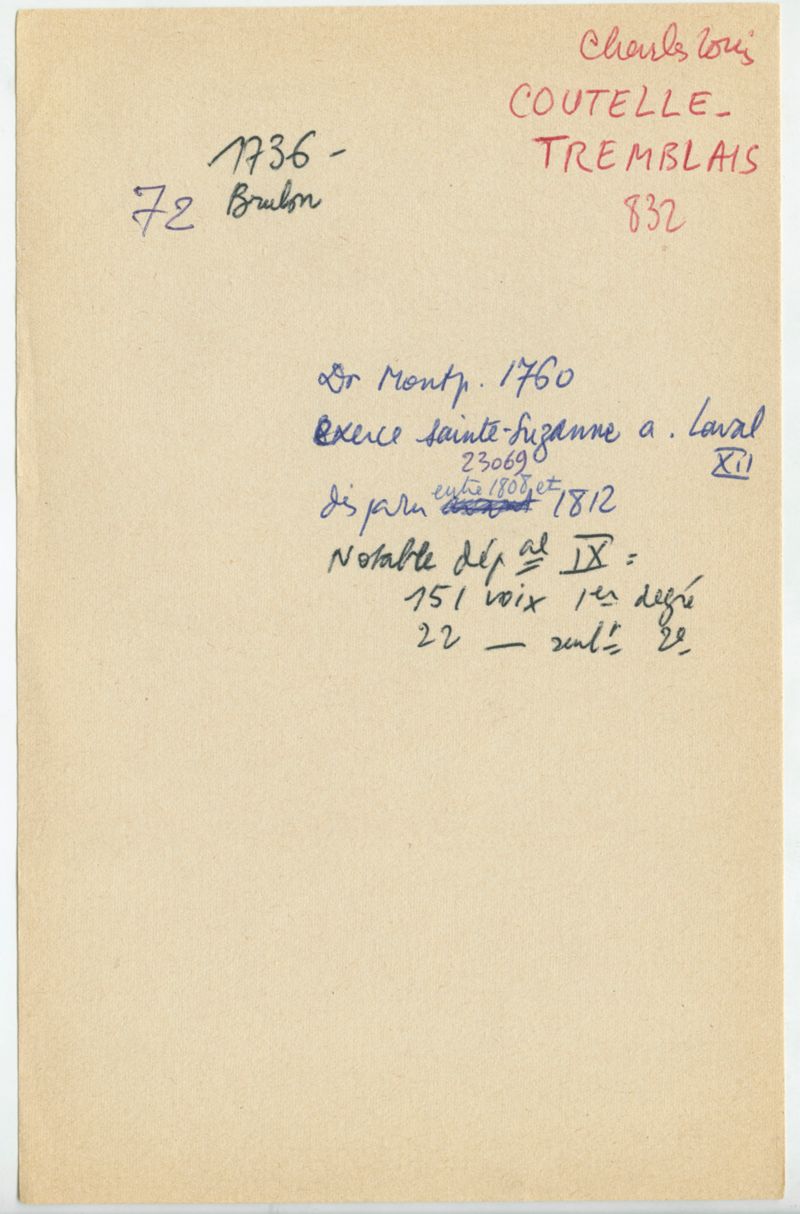 Charles Louis
COUTELLE-
TREMBLAIS
832
1736-
72 Brulon
Dr Montp. 1760
exerce Sainte-Suzanne a. Laval
23069 XII
disparu entre 1808 et 1812
Notable dép al IX =
151 voix 1er degré
22 — seult 2e